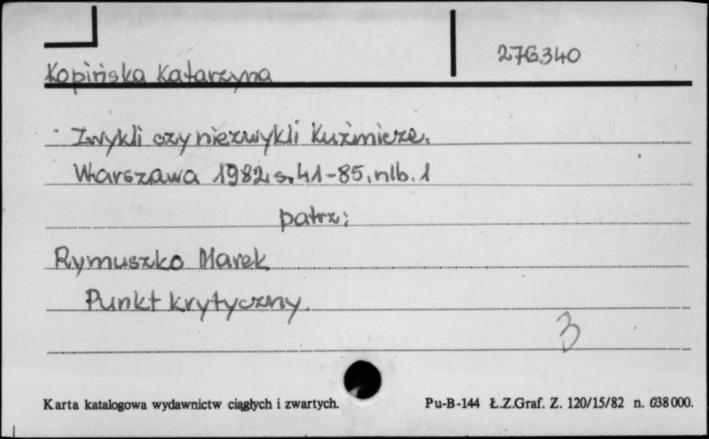 276340
Kopińska Katarzyna
Zwykli czy niezwykli Kuźmicze.
Warszawa 1982 s. 41-85, nlb. 1
patrz:
Rymuszko Marek
Punkt krytyczny.
3
Karta katalogowa wydawnictw ciągłych i zwartych.
Pu-B-144 Ł.Z.Graf. Z. 120/15/82 n. 638 000.